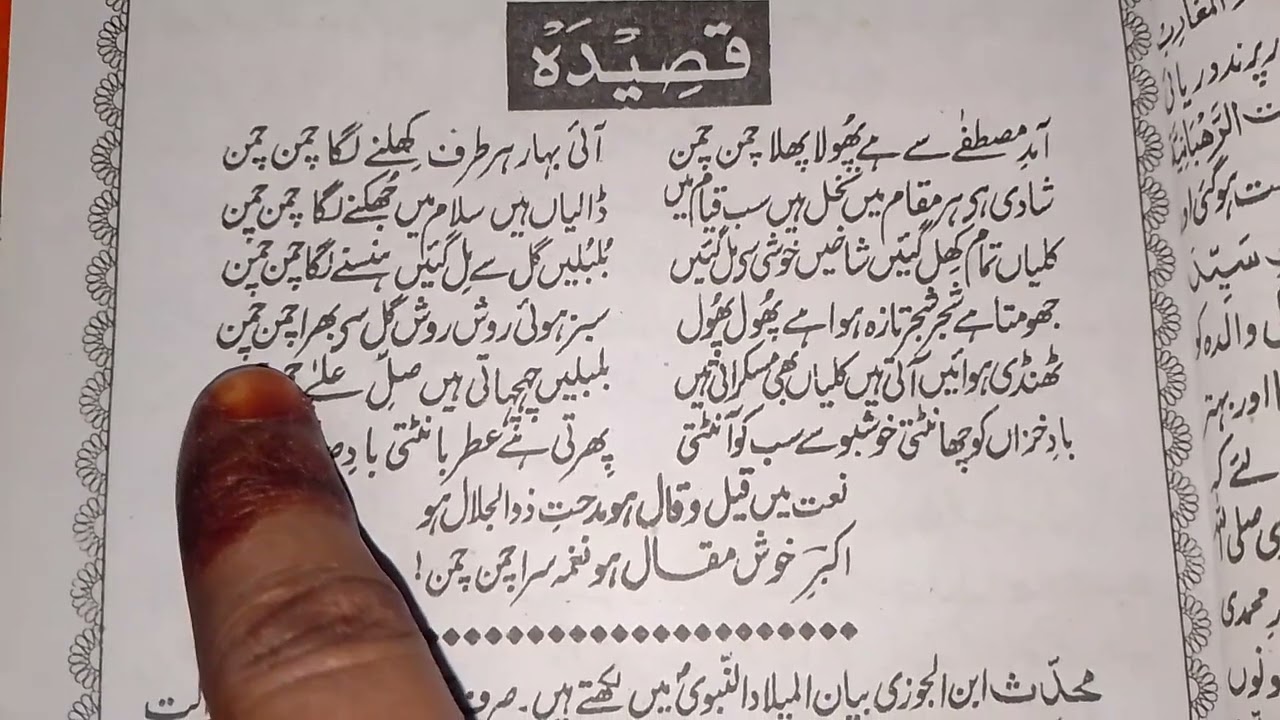 قصیدہ
آمدِ مصطفےٰ سے ہے پھُولا پھلا چمن چمن آئی بہار ہر طرف کھِلنے لگا چمن چمن
شادی ہی ہر مقام میں نخل ہیں سب قیام میں ڈالیاں ہیں سلام میں جھُکنے لگا چمن چمن
کلیاں تمام کھِل گئیں شاخیں خوشی سی ہل گئیں بُلبُلیں گل سے مِل گئیں ہنسنے لگا چمن چمن
جھومتا ہے شجر شجر تازہ ہوا ہے پھُول پھُول سبز ہوئی روش روش گل سی بھرا چمن چمن
ٹھنڈی ہوائیں آتی ہیں کلیاں بھی مسکراتی ہیں بلبلیں چہچہاتی ہیں صلِّ علےٰ
بادِ خزاں کو چھانٹتی خوشبو سے سب کو آنٹتی پھِرتی ہے عطر بانٹتی بادِ
نعت میں قیل و قال ہو مدحتِ ذوالجلال ہو
اکبرِ خوش مقال ہو نغمہ سرا چمن چمن!
محدّث ابن الجوزی بیان المیلاد النّبوی میں لکھتے ہیں۔
المغارب
دریائی
ہو گئی اور
والدہ کو
اور بہتر
لئے کہ
محمدی